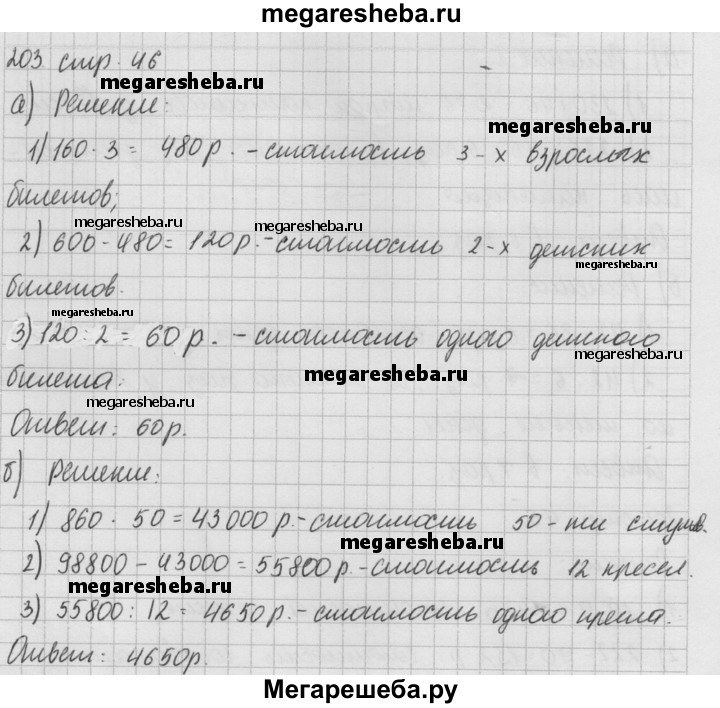 megaresheba.ru
203 стр. 46
megaresheba.ru
а) Решение:
megaresheba.ru
1) 160 · 3 = 480 р. - стоимость 3-х взрослых
билетов;
megaresheba.ru
megaresheba.ru
2) 600 - 480 = 120 р. - стоимость 2-х детских
megaresheba.ru
билетов.
megaresheba.ru
3) 120 : 2 = 60 р. - стоимость одного детского
megaresheba.ru
билета.
megaresheba.ru
megaresheba.ru
Ответ: 60 р.
б) Решение:
1) 860 · 50 = 43000 р. - стоимость 50-ти стульев.
megaresheba.ru
2) 98800 - 43000 = 55800 р. - стоимость 12 кресел.
megaresheba.ru
3) 55800 : 12 = 4650 р. - стоимость одного кресла.
Ответ: 4650 р.
Мегарешеба.ру